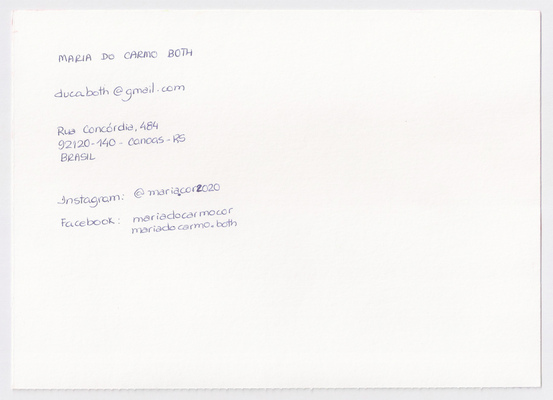 MARIA DO CARMO BOTH
ducaboth@gmail.com
Rua Concórdia, 484
92120-140 - Canoas - RS
BRASIL
Instagram: @mariacor2020
Facebook: mariadocarmocor
mariadocarmo.both